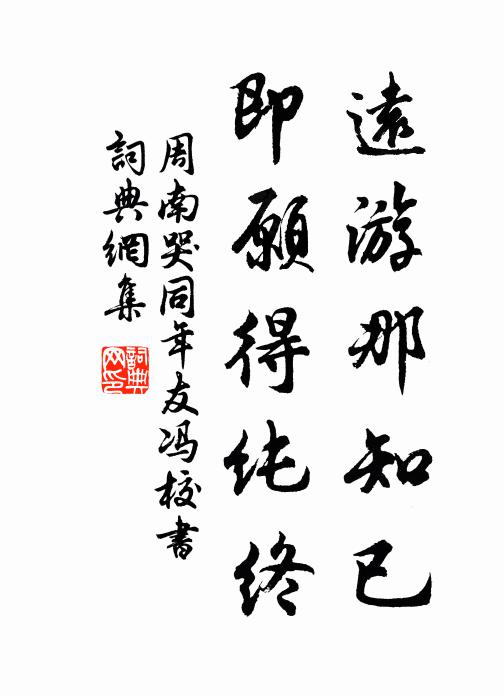 遠游那知已
即願得純終
周南哭同年友冯校書
詞典網集
詞典网印